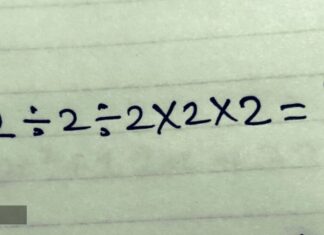 ÷2÷2×2×2=